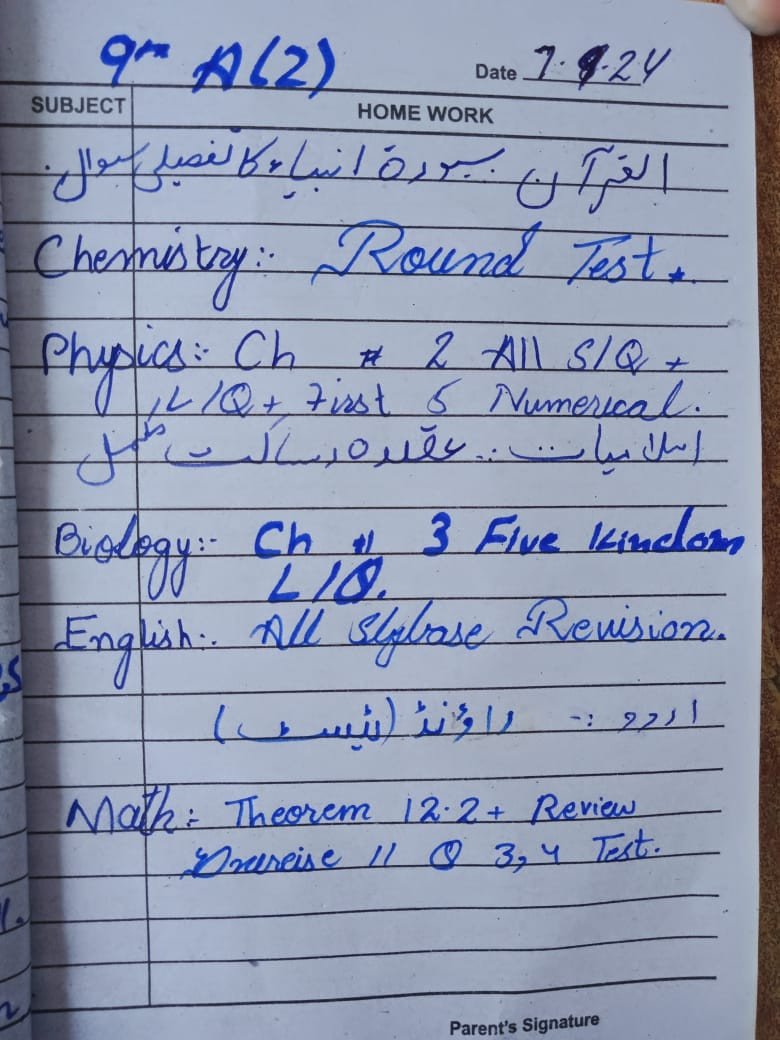 9th A(2)
Date 7.9.24
SUBJECT HOME WORK
القرآن سورۃ انبیاء کا تفصیلی سوال.
Chemistry:- Round Test.
Physics:- Ch # 2 All S/Q +
L/Q + First 5 Numerical.
اسلامیات :- عقیدہ رسالت مکمل
Biology:- Ch # 3 Five Kindom
L/Q.
English:- All Slybase Revision.
اردو :- راؤنڈ (ٹیسٹ)
Math:- Theorem 12.2 + Review
Exercise 11 Q 3,4 Test.
Parent's Signature